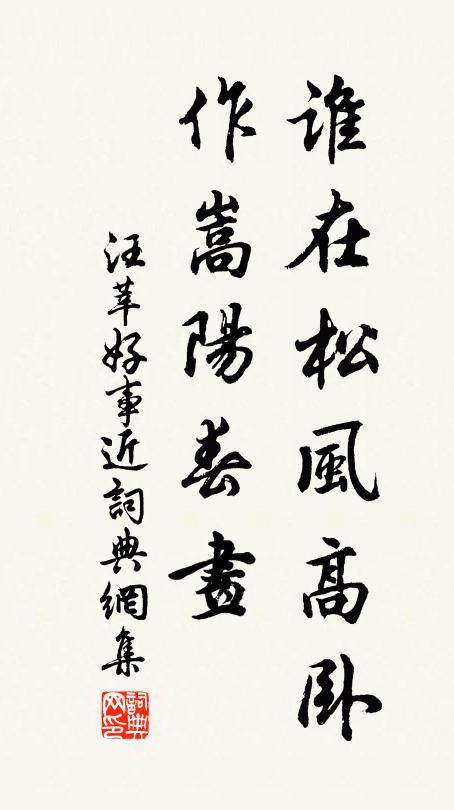 誰在松風高卧
作嵩陽春晝
汪莘好事近詞典網集
詞典網印